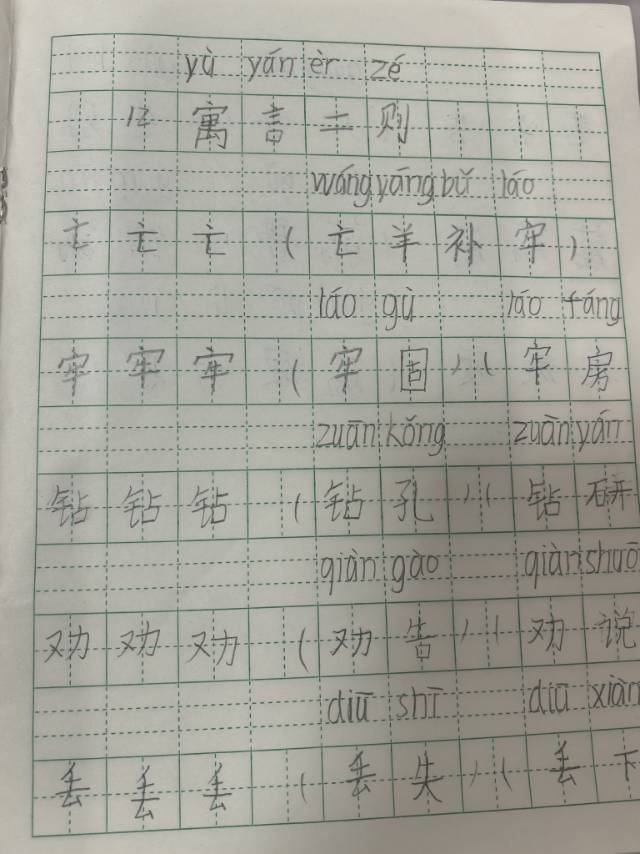 yù yán èr zé
12 寓言二则
wáng yáng bǔ láo
亡 亡 亡 ( 亡羊补牢 )
láo gù láo fáng
牢 牢 牢 ( 牢固 ) ( 牢房
zuān kǒng zuàn yán
钻 钻 钻 ( 钻孔 ) ( 钻研
qiàn gào qiàn shuō
劝 劝 劝 ( 劝告 ) ( 劝说
diū shī diū xiàn
丢 丢 丢 ( 丢失 ) ( 丢下